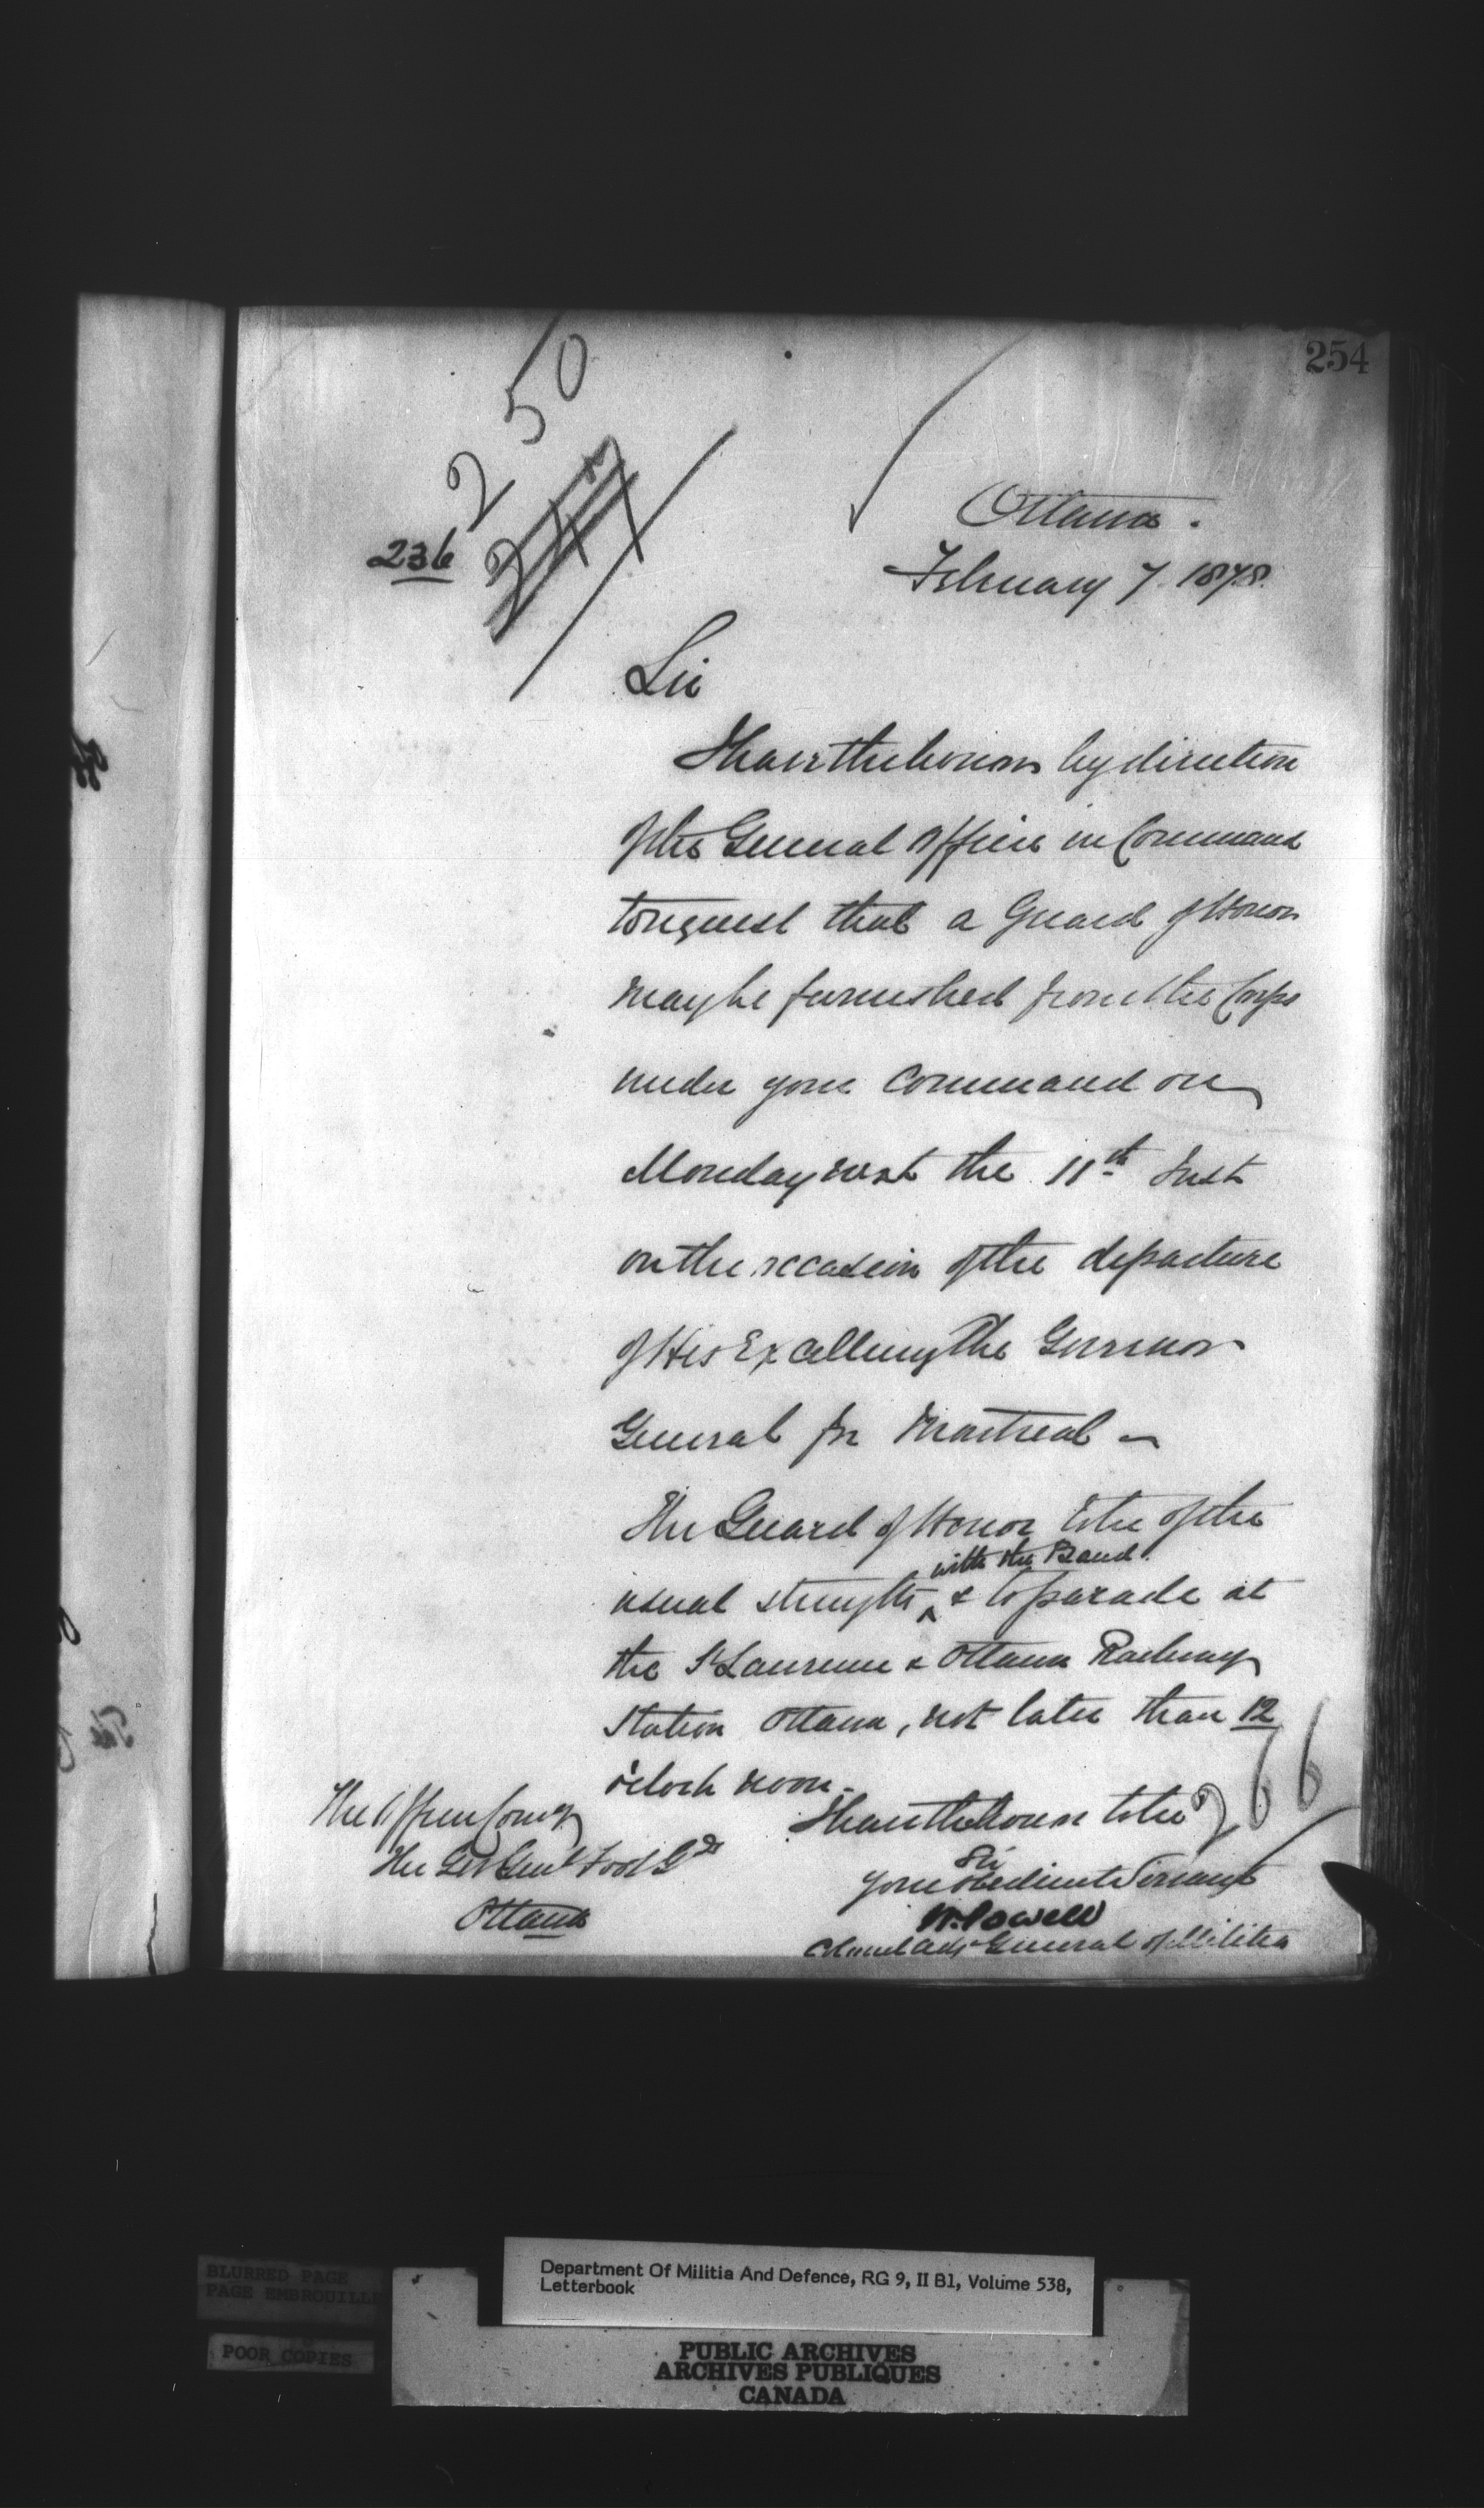 254
250
236
Ottawa.
February 7. 1878.
Sir
I have the honor by direction
of the General Officer in Command
to request that a Guard of Honor
may be furnished from the Corps
under your Command on
Monday next the 11th Inst
on the occasion of the departure
of His Excellency the Governor
General for Montreal —
The Guard of Honor to be of the
with the Band
usual strength ^ & to parade at
the St Lawrence & Ottawa Railway
Station Ottawa, not later than 12
o'clock noon.
I have the honor to be
266
Sir
Your obedient Servant
W. Powell
Colonel Adjt General of Militia
The Officer Comg
The Gov Genl Foot Gds
Ottawa
BLURRED PAGE
PAGE EMBROUILLE
POOR COPIES
Department Of Militia And Defence, RG 9, II B1, Volume 538,
Letterbook
PUBLIC ARCHIVES
ARCHIVES PUBLIQUES
CANADA